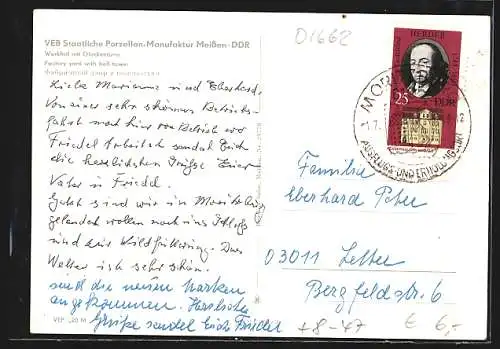 VEB Staatliche Porzellan-Manufaktur Meißen · DDR
Werkhof mit Glockenturm
Factory yard with bell-tower
Liebe Marianne und Eberhard.
Von einer sehr schönen Betriebs-
fahrt nach hier von Betrieb wo
Friedel arbeitet sendet Euch
die herzlichsten Grüße Euer
Vater u. Friedel.
Jetzt sind wir in Moritzburg
gelandet wollen noch ins Schloß
und zur Wildfütterung. Das
Wetter ist sehr schön.
sind die neuen Marken
angekommen. Herzliche
Grüße sendet Euch Friedel
01662
HERDER
25
DDR
MORITZ
AUSFLUGS- UND ERHOLUNGSORT
Familie
Eberhard Peter
03011
Bergfeldstr. 6
+8-47
€ 6,-